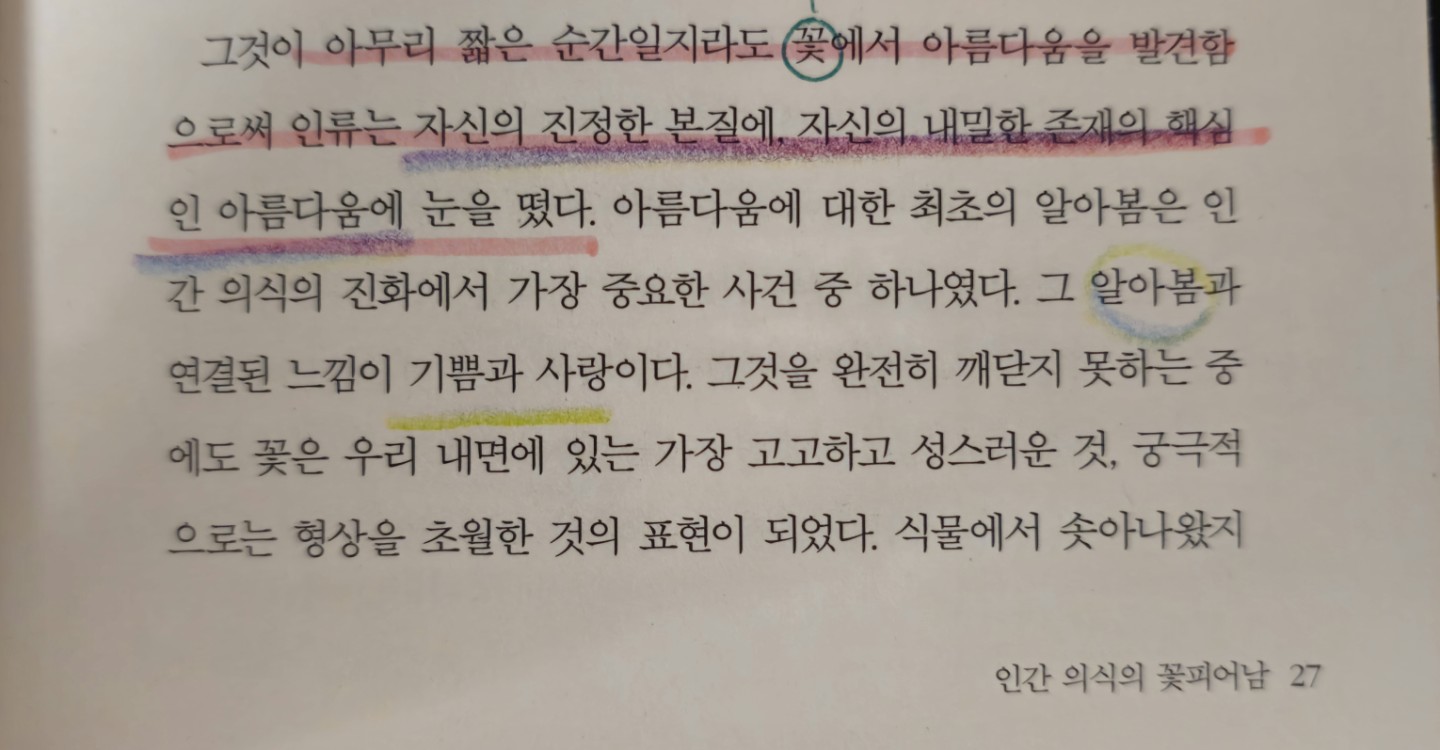 그것이 아무리 짧은 순간일지라도 꽃에서 아름다움을 발견함
으로써 인류는 자신의 진정한 본질에, 자신의 내밀한 존재의 핵심
인 아름다움에 눈을 떴다. 아름다움에 대한 최초의 알아봄은 인
간 의식의 진화에서 가장 중요한 사건 중 하나였다. 그 알아봄과
연결된 느낌이 기쁨과 사랑이다. 그것을 완전히 깨닫지 못하는 중
에도 꽃은 우리 내면에 있는 가장 고고하고 성스러운 것, 궁극적
으로는 형상을 초월한 것의 표현이 되었다. 식물에서 솟아나왔지
인간 의식의 꽃피어남 27